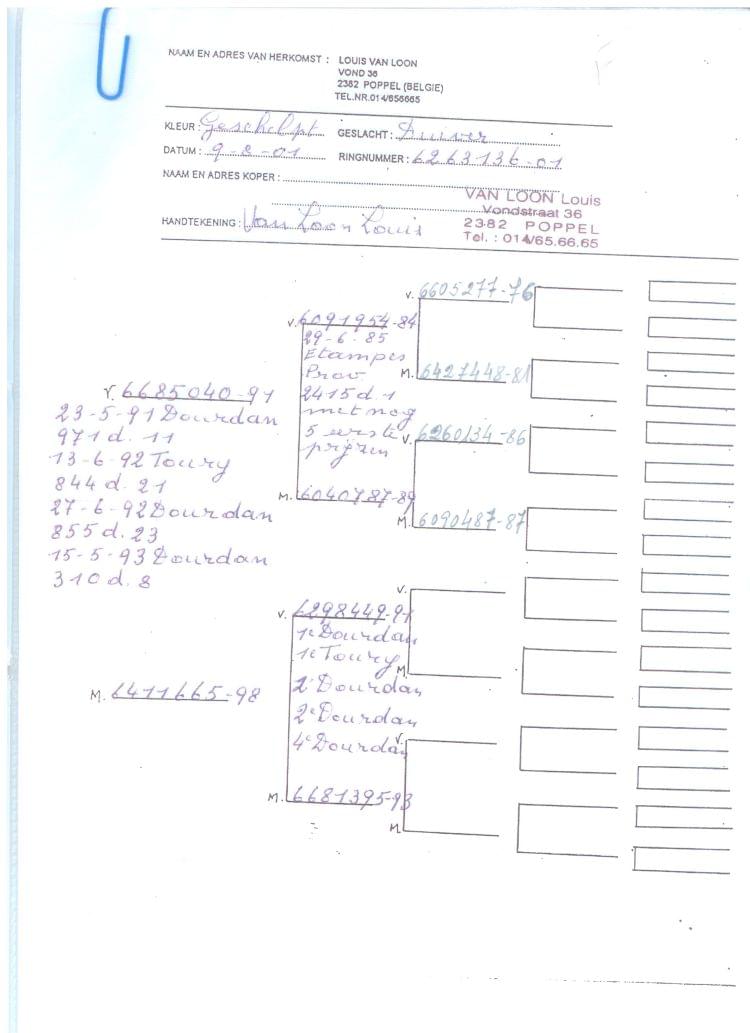 NAAM EN ADRES VAN HERKOMST : LOUIS VAN LOON
VOND 36
2382 POPPEL (BELGIE)
TEL.NR.014/656665
KLEUR : Geschelpt GESLACHT : Duiver
DATUM : 9-8-01 RINGNUMMER : 6263136-01
NAAM EN ADRES KOPER :
HANDTEKENING : Van Loon Louis
VAN LOON Louis
Vondstraat 36
2382 POPPEL
Tel. : 014/65.66.65
V. 6685040-91
23-5-91 Dourdan
971 d. 11
13-6-92 Toury
844 d. 21
27-6-92 Dourdan
855 d. 23
15-5-93 Dourdan
310 d. 8
M. 6411665-98
V. 6091954-84
29-6-85
Etampes
Prov.
2415 d. 1
met nog
5 eerste
prijzen
M. 6040787-89
V. 6298449-91
1e Dourdan
1e Toury
2e Dourdan
2e Dourdan
4e Dourdan
M. 6681395-93
V. 6605277-76
M. 6427448-81
V. 6260134-86
M. 6090487-87
V.
M.
V.
M.